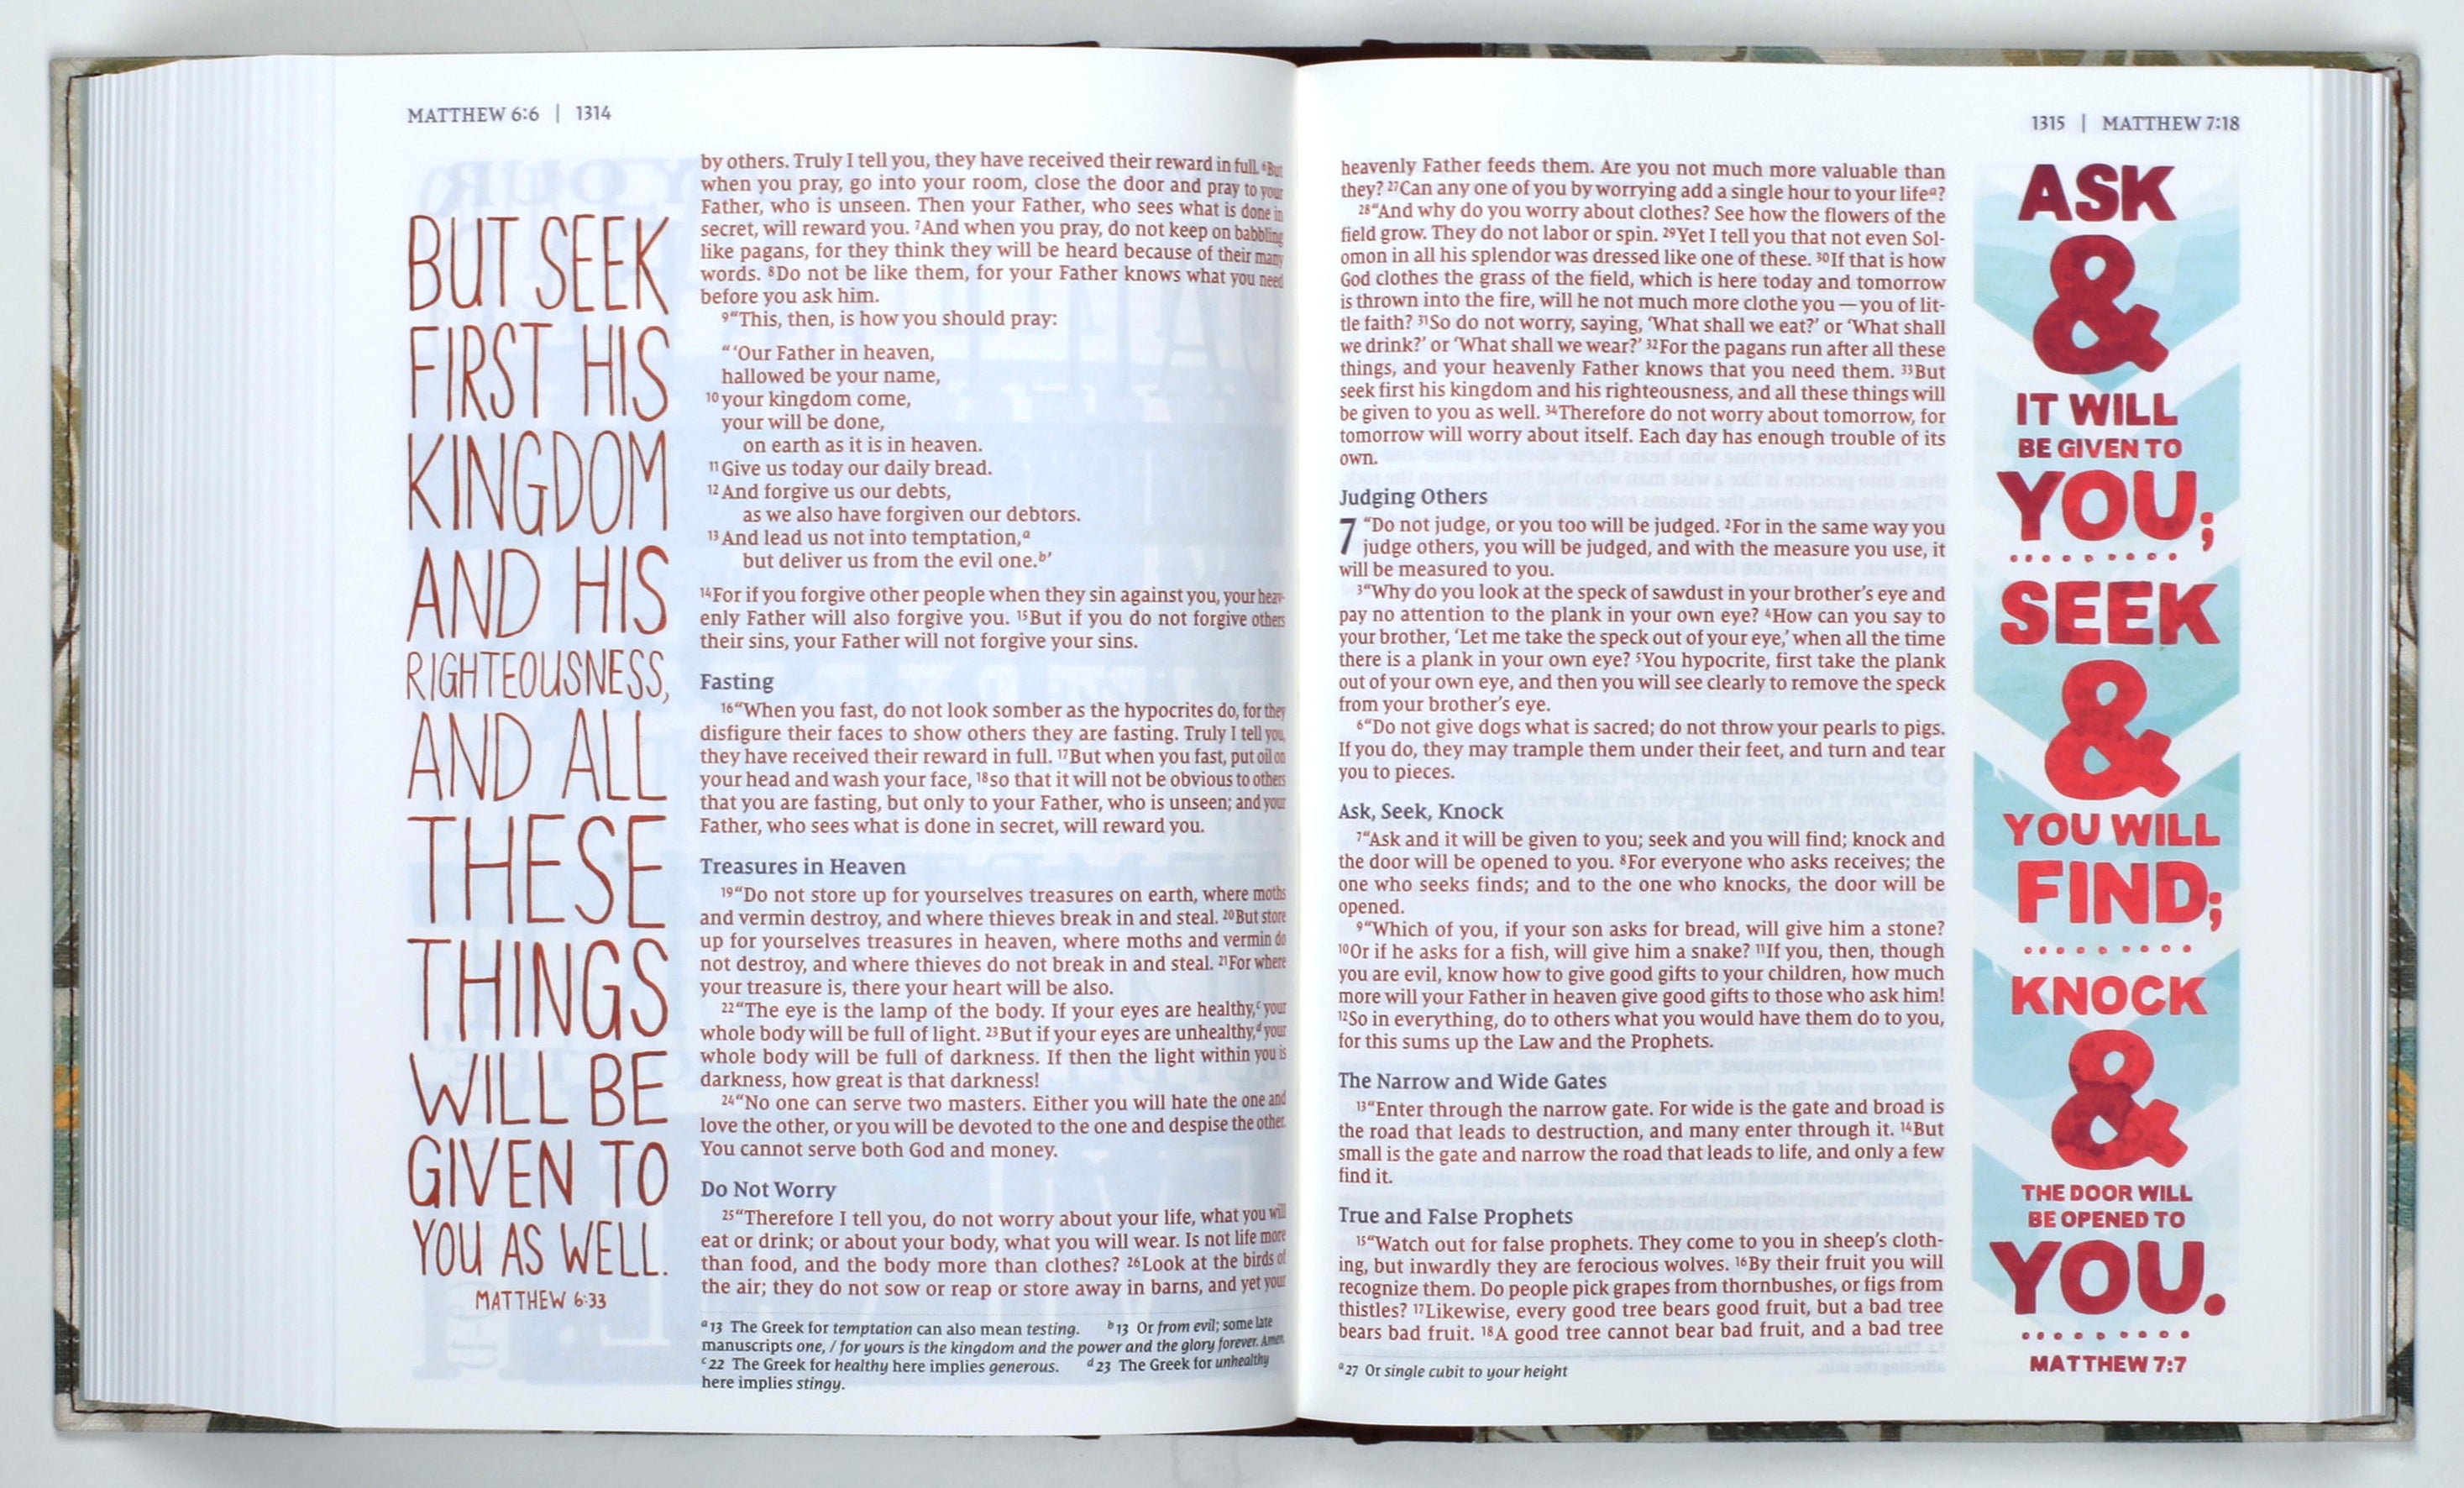 MATTHEW 6:6 | 1314
BUT SEEK
FIRST HIS
KINGDOM
AND HIS
RIGHTEOUSNESS,
AND ALL
THESE
THINGS
WILL BE
GIVEN TO
YOU AS WELL.
MATTHEW 6:33
by others. Truly I tell you, they have received their reward in full. 6But
when you pray, go into your room, close the door and pray to your
Father, who is unseen. Then your Father, who sees what is done in
secret, will reward you. 7And when you pray, do not keep on babbling
like pagans, for they think they will be heard because of their many
words. 8Do not be like them, for your Father knows what you need
before you ask him.
9“This, then, is how you should pray:
“ ‘Our Father in heaven,
hallowed be your name,
10 your kingdom come,
your will be done,
on earth as it is in heaven.
11 Give us today our daily bread.
12 And forgive us our debts,
as we also have forgiven our debtors.
13 And lead us not into temptation,a
but deliver us from the evil one.b’
14For if you forgive other people when they sin against you, your heav-
enly Father will also forgive you. 15But if you do not forgive others
their sins, your Father will not forgive your sins.
Fasting
16“When you fast, do not look somber as the hypocrites do, for they
disfigure their faces to show others they are fasting. Truly I tell you,
they have received their reward in full. 17But when you fast, put oil on
your head and wash your face, 18so that it will not be obvious to others
that you are fasting, but only to your Father, who is unseen; and your
Father, who sees what is done in secret, will reward you.
Treasures in Heaven
19“Do not store up for yourselves treasures on earth, where moths
and vermin destroy, and where thieves break in and steal. 20But store
up for yourselves treasures in heaven, where moths and vermin do
not destroy, and where thieves do not break in and steal. 21For where
your treasure is, there your heart will be also.
22“The eye is the lamp of the body. If your eyes are healthy,c your
whole body will be full of light. 23But if your eyes are unhealthy,d your
whole body will be full of darkness. If then the light within you is
darkness, how great is that darkness!
24“No one can serve two masters. Either you will hate the one and
love the other, or you will be devoted to the one and despise the other.
You cannot serve both God and money.
Do Not Worry
25“Therefore I tell you, do not worry about your life, what you will
eat or drink; or about your body, what you will wear. Is not life more
than food, and the body more than clothes? 26Look at the birds of
the air; they do not sow or reap or store away in barns, and yet your
a 13 The Greek for temptation can also mean testing. b 13 Or from evil; some late
manuscripts one, / for yours is the kingdom and the power and the glory forever. Amen.
c 22 The Greek for healthy here implies generous. d 23 The Greek for unhealthy
here implies stingy.
1315 | MATTHEW 7:18
heavenly Father feeds them. Are you not much more valuable than
they? 27Can any one of you by worrying add a single hour to your lifea?
28“And why do you worry about clothes? See how the flowers of the
field grow. They do not labor or spin. 29Yet I tell you that not even Sol-
omon in all his splendor was dressed like one of these. 30If that is how
God clothes the grass of the field, which is here today and tomorrow
is thrown into the fire, will he not much more clothe you — you of lit-
tle faith? 31So do not worry, saying, ‘What shall we eat?’ or ‘What shall
we drink?’ or ‘What shall we wear?’ 32For the pagans run after all these
things, and your heavenly Father knows that you need them. 33But
seek first his kingdom and his righteousness, and all these things will
be given to you as well. 34Therefore do not worry about tomorrow, for
tomorrow will worry about itself. Each day has enough trouble of its
own.
Judging Others
7 “Do not judge, or you too will be judged. 2For in the same way you
judge others, you will be judged, and with the measure you use, it
will be measured to you.
3“Why do you look at the speck of sawdust in your brother’s eye and
pay no attention to the plank in your own eye? 4How can you say to
your brother, ‘Let me take the speck out of your eye,’ when all the time
there is a plank in your own eye? 5You hypocrite, first take the plank
out of your own eye, and then you will see clearly to remove the speck
from your brother’s eye.
6“Do not give dogs what is sacred; do not throw your pearls to pigs.
If you do, they may trample them under their feet, and turn and tear
you to pieces.
Ask, Seek, Knock
7“Ask and it will be given to you; seek and you will find; knock and
the door will be opened to you. 8For everyone who asks receives; the
one who seeks finds; and to the one who knocks, the door will be
opened.
9“Which of you, if your son asks for bread, will give him a stone?
10Or if he asks for a fish, will give him a snake? 11If you, then, though
you are evil, know how to give good gifts to your children, how much
more will your Father in heaven give good gifts to those who ask him!
12So in everything, do to others what you would have them do to you,
for this sums up the Law and the Prophets.
The Narrow and Wide Gates
13“Enter through the narrow gate. For wide is the gate and broad is
the road that leads to destruction, and many enter through it. 14But
small is the gate and narrow the road that leads to life, and only a few
find it.
True and False Prophets
15“Watch out for false prophets. They come to you in sheep’s cloth-
ing, but inwardly they are ferocious wolves. 16By their fruit you will
recognize them. Do people pick grapes from thornbushes, or figs from
thistles? 17Likewise, every good tree bears good fruit, but a bad tree
bears bad fruit. 18A good tree cannot bear bad fruit, and a bad tree
a 27 Or single cubit to your height
ASK
&
IT WILL
BE GIVEN TO
YOU;
SEEK
&
YOU WILL
FIND;
KNOCK
&
THE DOOR WILL
BE OPENED TO
YOU.
MATTHEW 7:7